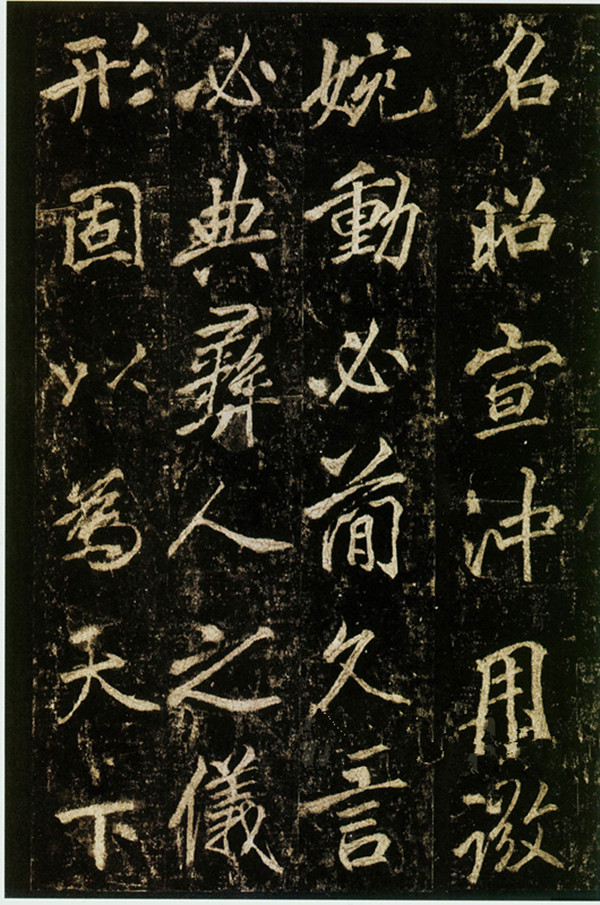 名昭宣沖用微
婉動必簡久言
必典彝人之儀
形固以為天下